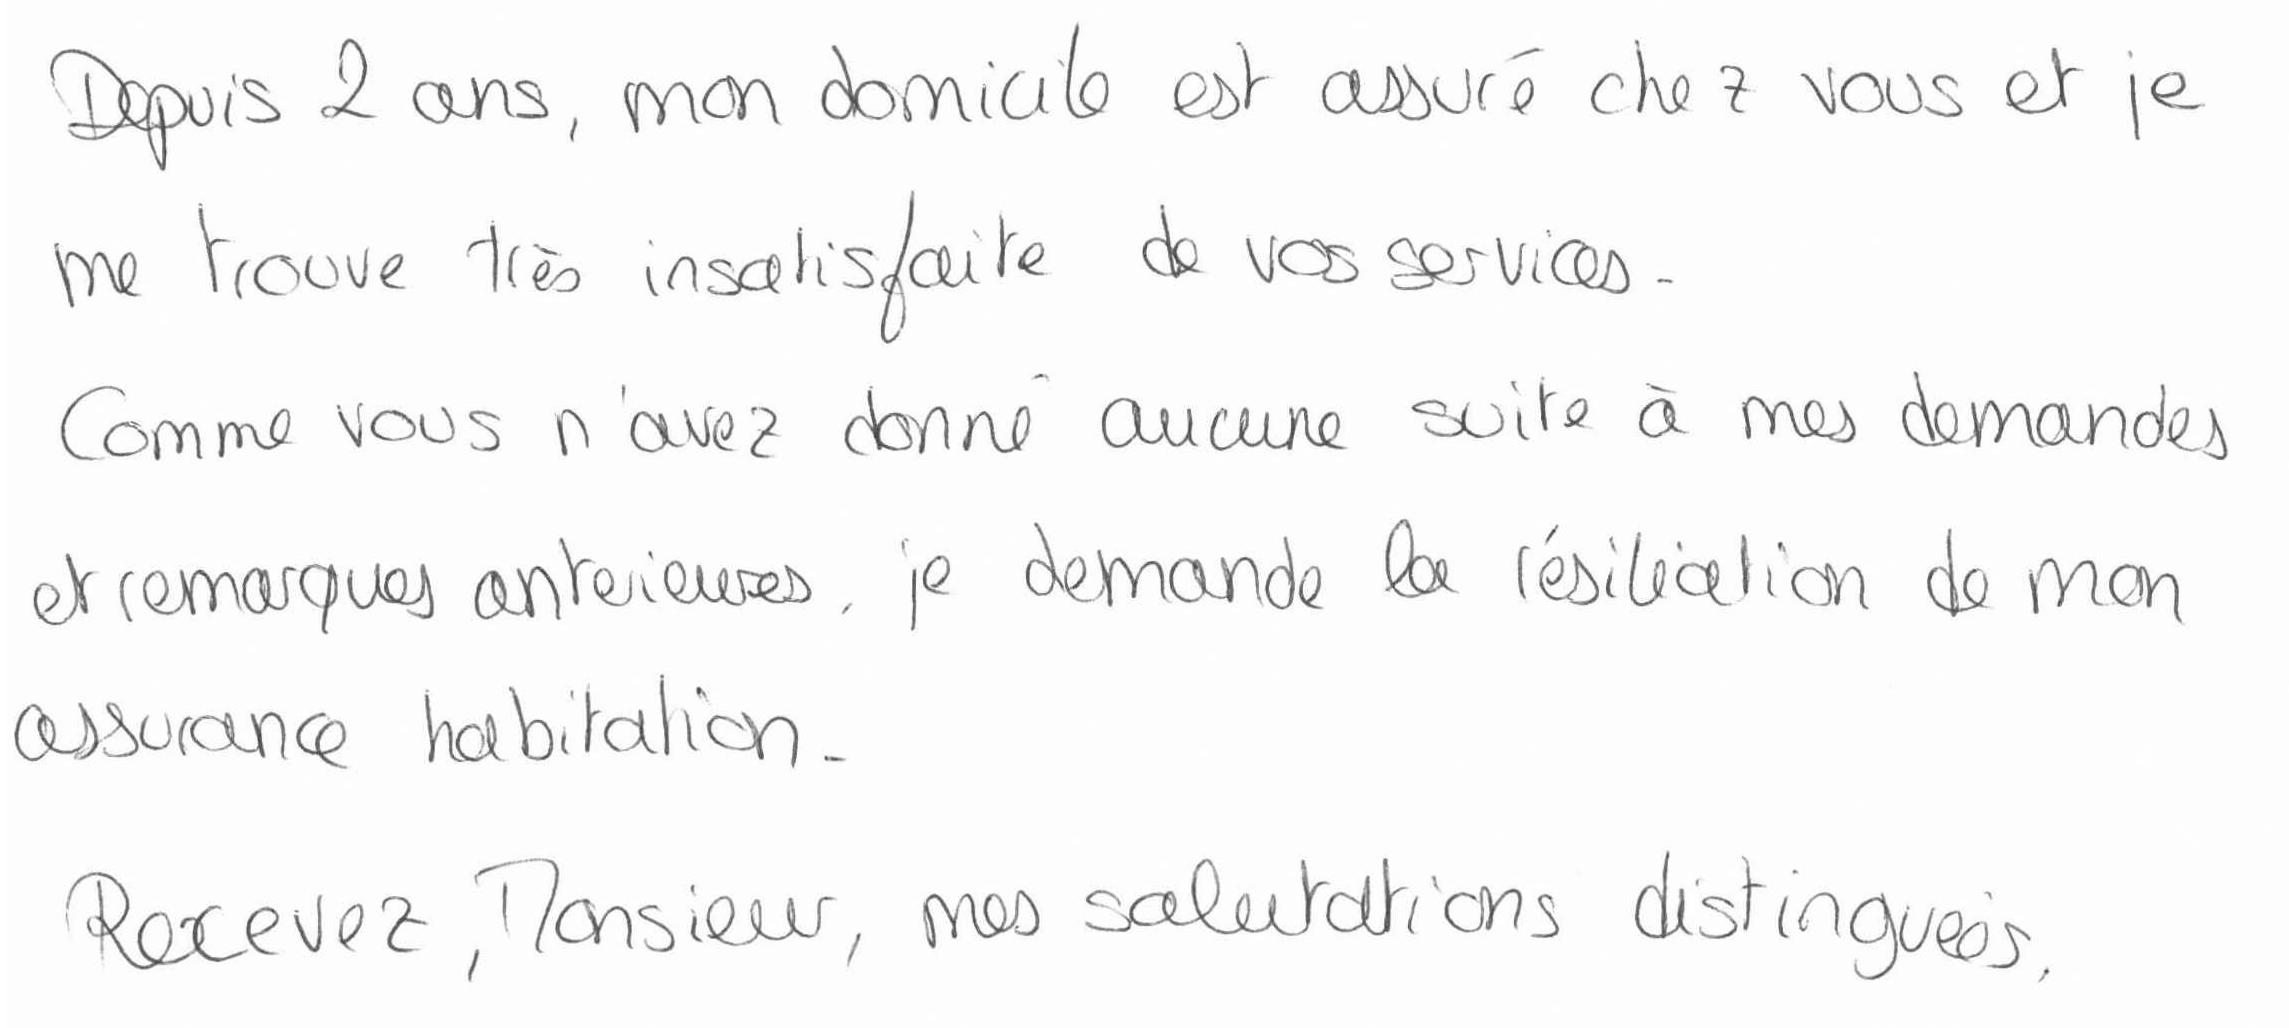 Depuis 2 ans, mon domicile est assuré chez vous et je
me trouve très insatisfaite de vos services.
Comme vous n'avez donné aucune suite à mes demandes
et remarques anterieures, je demande la résiliation de mon
assurance habitation.
Recevez, Monsieur, mes salutations distinguées.